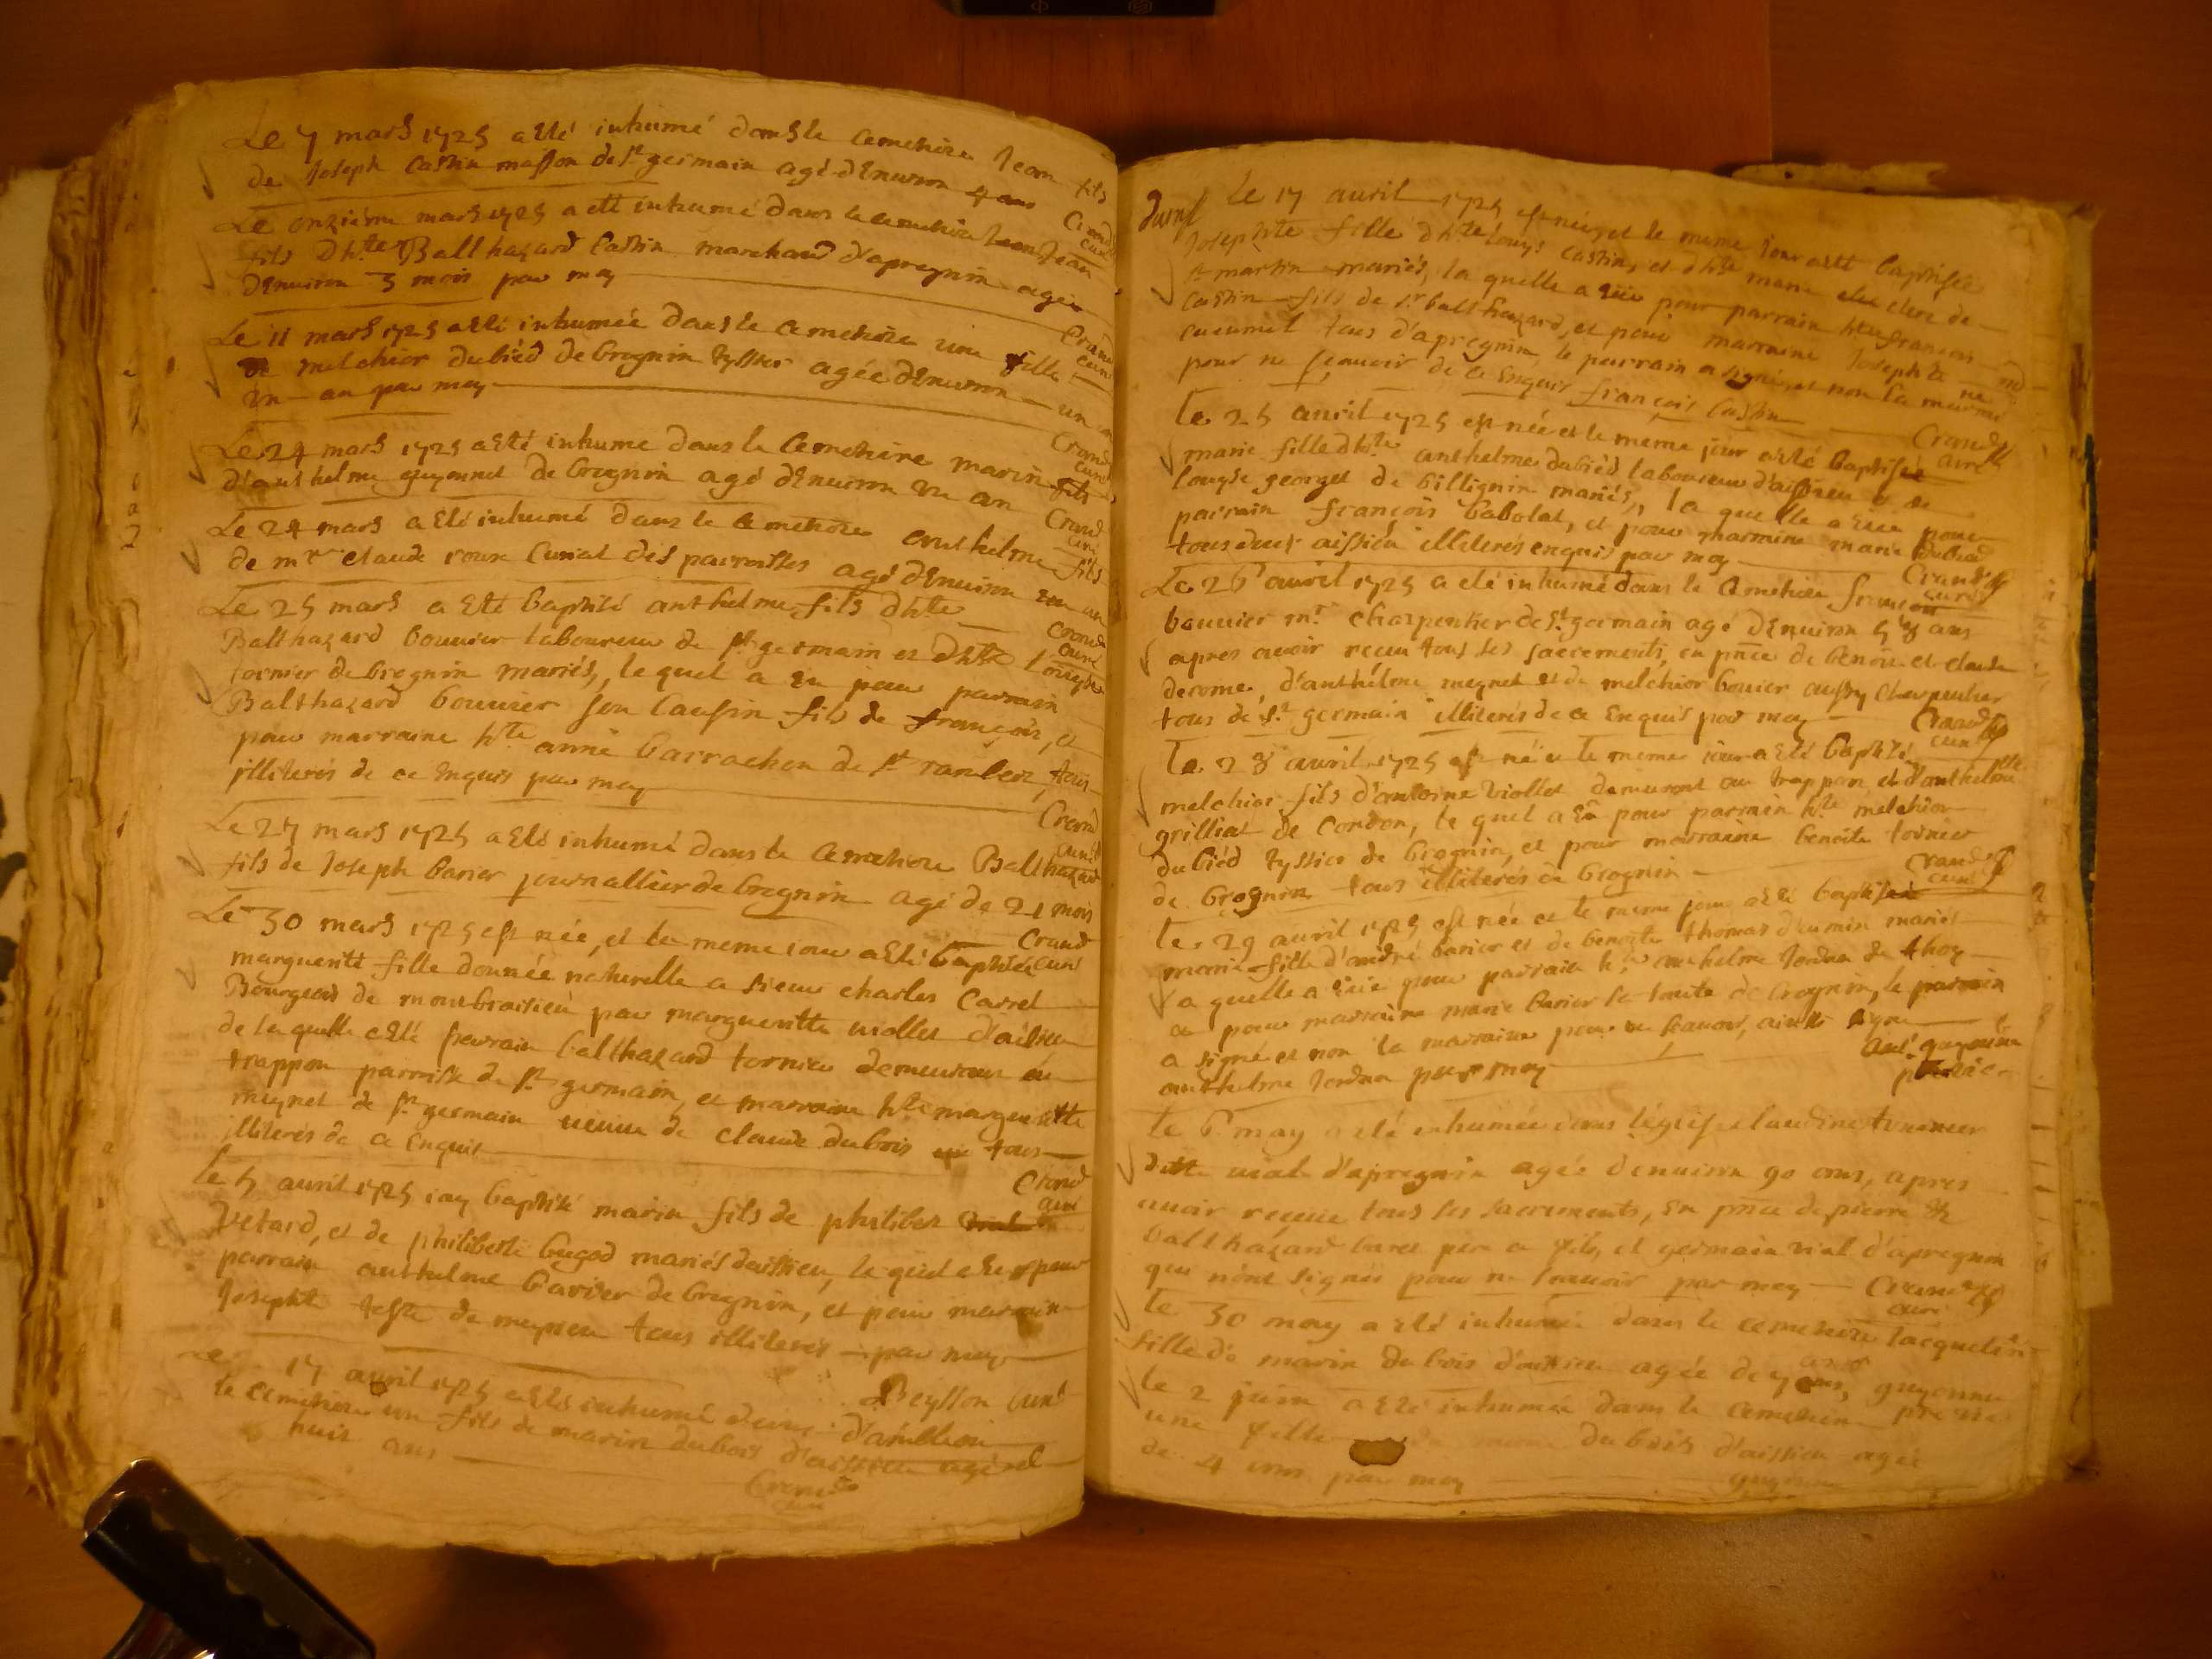 Le 7 mars 1725 a esté inhumé dans le cemetiere Jean fils
de Joseph Castin masson de st germain agé d'Enuiron 4 ans
Crand
curé
Le onzieme mars 1725 a esté inhumé dans le cemetiere Jean
fils d'hte Balthazard Castin marchand d'apregnin agé
d'Enuiron 3 mois par moy
Crand
curé
Le 11 mars 1725 a esté inhumée dans le cemetiere une fille
de melchior dubiéd de brognin tyssier agée d'Enuiron un
an par moy
Crand
curé
Le 24 mars 1725 a esté inhumé dans le Cemetiere marin fils
d'anthelme guyonnet de brognin agé d'Enuiron un an
Crand
curé
Le 24 mars a esté inhumé dans le cemetiere anthelme fils
de mre claude roux curial des parroisses agé d'Enuiron un an
Crand
curé
Le 25 mars a esté baptisé anthelme fils d'hte
Balthazard bouuier laboureur de st germain et d'hte Louyse
tornier de brognin mariés, le quel a Eu pour parrain
Balthazard bouuier son Cousin fils de françois, et
pour marraine hte anne barrachon de st rambert, tous
illiterés de ce Enquis par moy
Crand
curé
Le 27 mars 1725 a esté inhumé dans le Cemetiere Balthazard
fils de Joseph barier journallier de brognin agé de 21 mois
Crand
curé
Le 30 mars 1725 est née, et le meme jour a esté baptisée
marguerite fille donnée naturelle a sieur charles Carrel
Bourgeois de par marguerite viollet d'aissieu
de laquelle a esté parrain balthazard tornier demeurant au
trappon parroisse de st germain, et marraine hte marguerite
meynet de st germain veuue de claude dubois tous
illiterés de ce Enquis
Crand
curé
Le 5 avril 1725 iay baptisé marin fils de philibert
Vetard, et de philiberte bugod mariés d'aissieu, le quel a eu pour
parrain anthelme barier de brognin, et pour marraine
Josephte teste de meyrieu tous illiterés par moy
Beysson curé
d'ambleon
Le 17 avril 1725 a esté inhumé dans
le cemetiere un fils de marin dubois d'aissieu agé de
huit ans
Crand
curé
Le 17 avril 1725 est née, et le meme jour a esté baptisée
Josephte fille d'hte Louys Castin, et d'hte marie clerc de
st martin mariés, la quelle a Eüe pour parrain hte françois
Castin fils de sr balthazard, et pour marraine Josephte
cucumel tous d'apregnin, le parrain a signé, et non la marraine
pour ne sçauoir de ce Enquis françois Castin
Crand
curé
Le 25 avril 1725 est née et le meme jour a esté baptisée
marie fille d'hte anthelme dubiéd laboureur d'aissieu et de
Louyse georget de billignin mariés, la quelle a Eue pour
parrain françois babolat, et pour marraine marie dubiéd
tous deux aissieu illiterés enquis par moy
Crand
curé
Le 26 avril 1725 a eté inhumé dans le Cemetiere françois
bouuier mre charpentier de st germain agé d'Enuiron 58 ans
apres auoir receu tous les sacrements, en pnce de benoit et claude
derome, d'anthelme meynet et de melchior bouier aussy charpentier
tous de st germain illiterés de ce Enquis par moy
Crand
curé
Le 28 avril 1725 est né et le meme jour a esté baptisé
melchior fils d'antoine Viollet demeurant au trappon, et d'anthelmette
grilliat de Cordon, le quel a Eü pour parrain hte melchior
dubiéd tyssier de brognin, et pour marraine benoite tornier
de brognin tous illiterés a brognin
Crand
curé
Le 29 avril 1725 est née et le meme jour a esté baptisée
marie fille d'andré barier et de benoite thomas mariés
la quelle a Eüe pour parrain hte anthelme Jordan de thoy
et pour marraine marie barier sa tante de brognin, le parrain
a signé et non la marraine pour ne scauoir, ainsi signé
anthelme Jordan par moy
Le 6 may a eté inhumée dans l'église claudine tournier
ditte vial d'apregnin agée d'enuiron 90 ans, apres
auoir receüe tous les sacrements, En pnce de pierre &
balthazard baret pere et fils, et germain vial d'apregnin
qui n'ont signés pour ne scauoir par moy
Crand
curé
Le 30 may a esté inhumée dans le cemetiere Jacqueline
fille de marin dubois d'aissieu agée de 7 ans, guyonnet
Le 2 juin a esté inhumée dans le cemetiere
une fille dubois d'aissieu agée
de 4 ans par moy